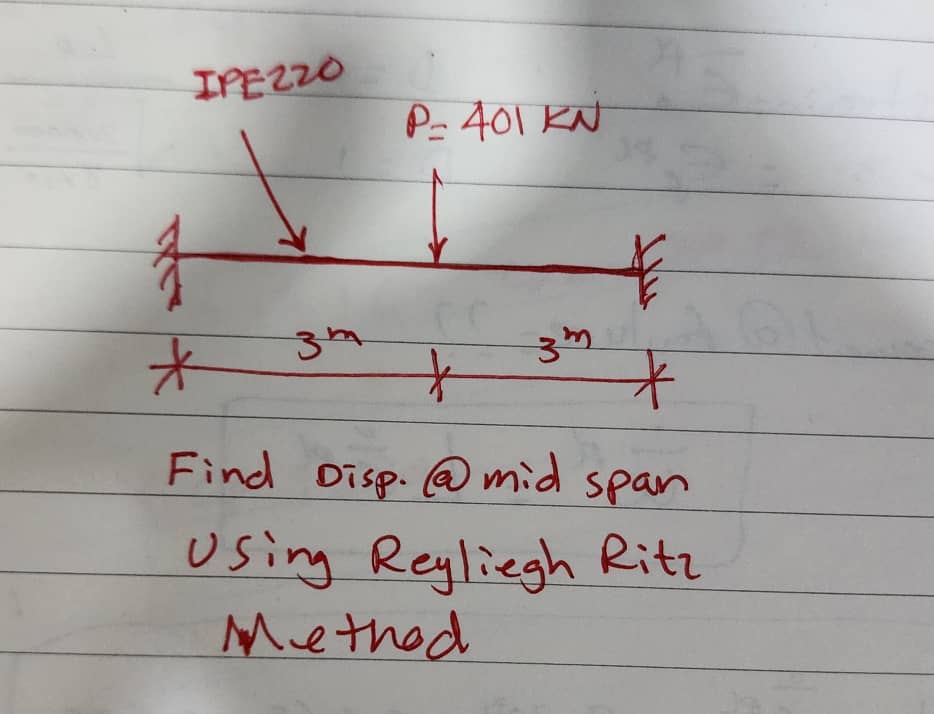 IPE220
P= 401 KN
3m 3m
Find Disp. @ mid span
Using Reyliegh Ritz
Method